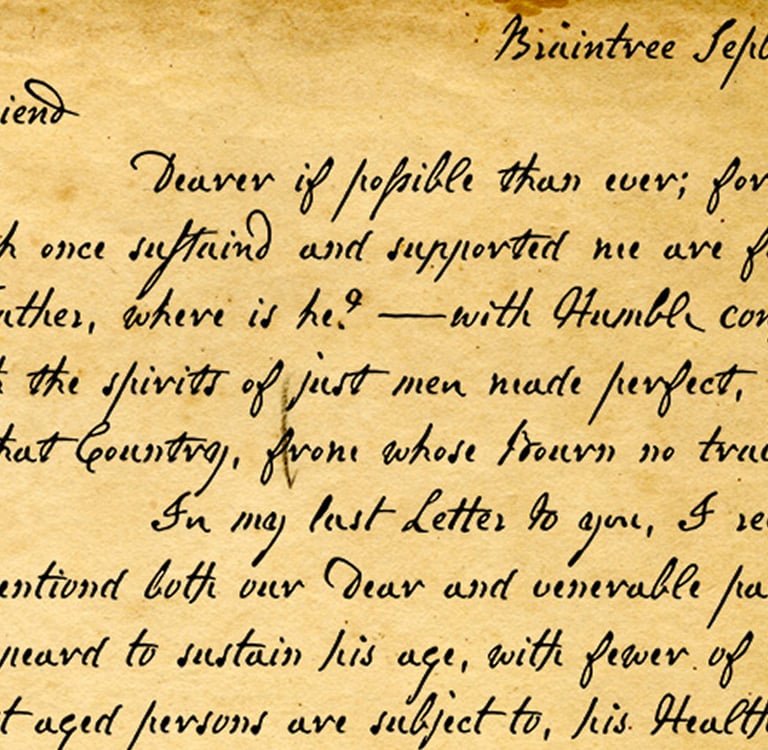 Braintree Sepb
iend
Dearer if poſsible than ever; for
h once suſtaind and supported me are f
ather, where is he? —with Humble con
h the spirits of just men made perfect,
hat Country, from whose Bourn no trav
In my last Letter to you, I re
entiond both our Dear and venerable pa
peard to sustain his age, with fewer of
t aged persons are subject to, his Health